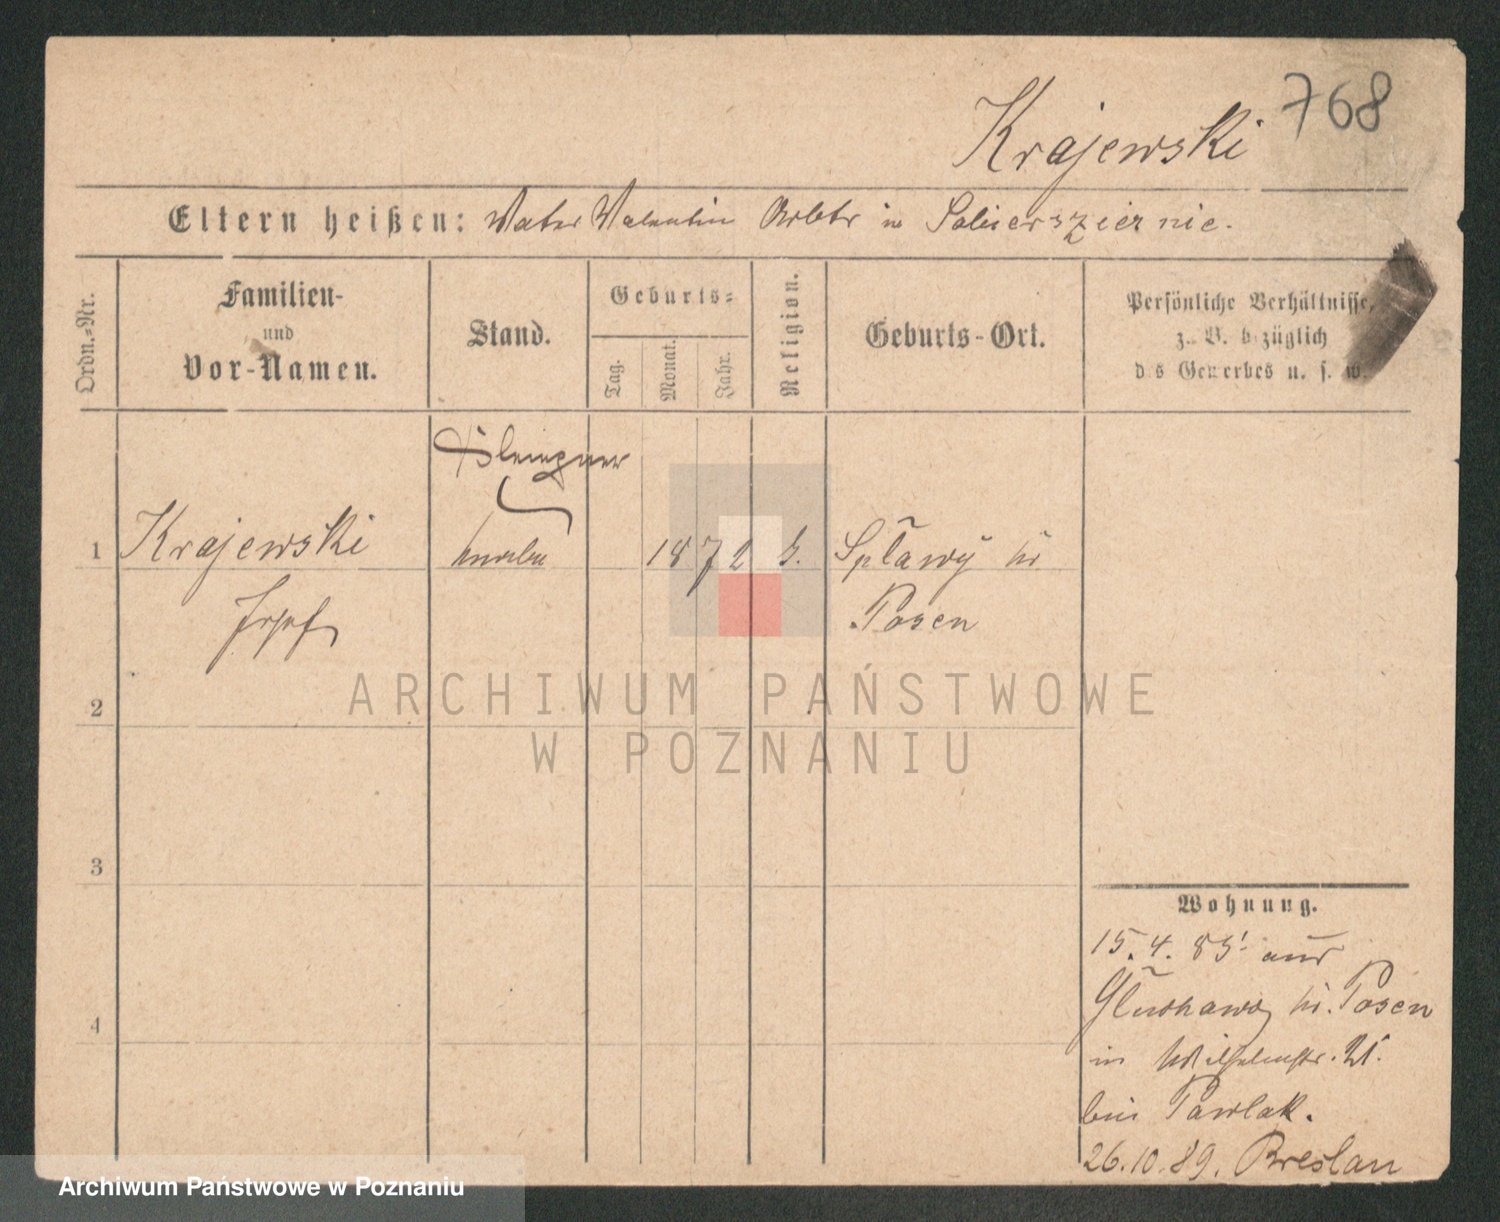 768
Krajewski
Eltern heißen: Vater Valentin Arbtr in
Ordn.-Nr.
Familien-
und
Vor-Namen.
Stand.
Geburts-
Tag.
Monat.
Jahr.
Religion.
Geburts-Ort.
Persönliche Verhältnisse,
z. B. bezüglich
des Gewerbes u. s. w.
Klempner
1 Krajewski 1872 k. Spławÿ kr
Josef Posen
2
3
4
Wohnung.
15. 4. 85 aus
kr. Posen
in Wilhelmstr. 21.
bei Pawlak.
26.10.89. Breslau
ARCHIWUM PAŃSTWOWE
W POZNANIU
Archiwum Państwowe w Poznaniu